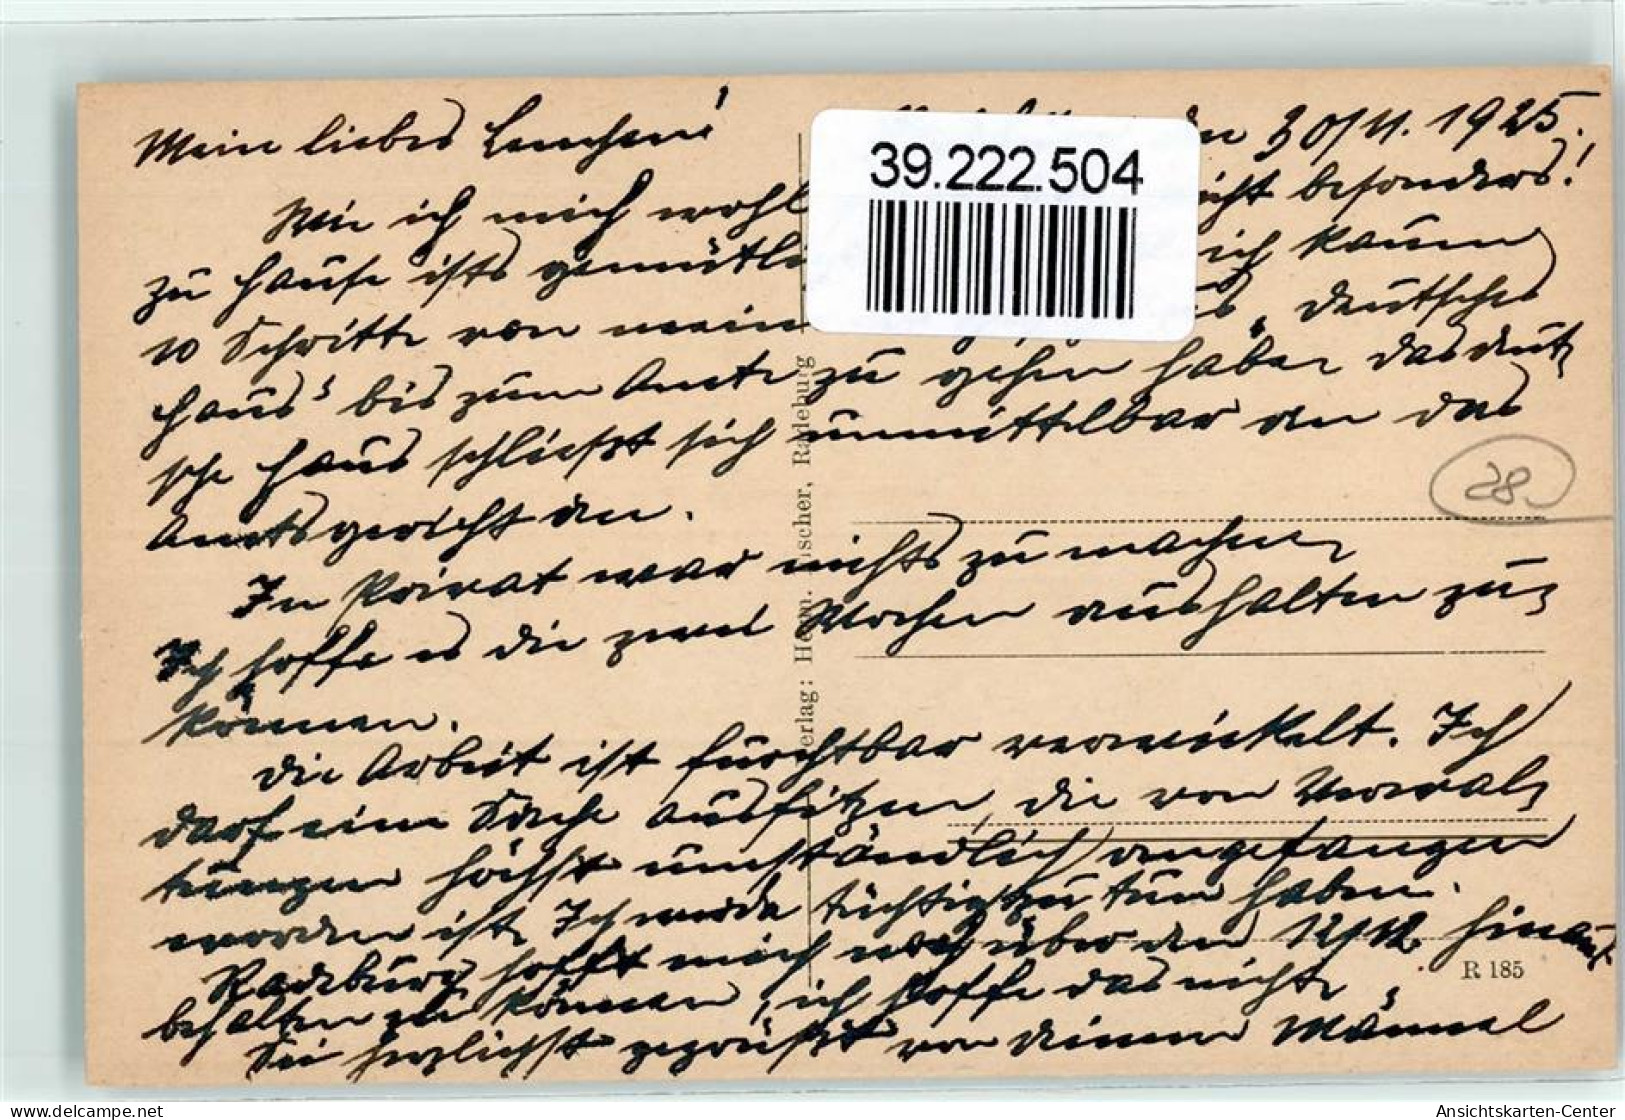 Mein liebes Lenchen!
den 30/11. 1925.
39.222.504
Wie ich mich wohl
nicht besonders!
zu Hause ists gemütli
ich kaum
10 Schritte von mein
„Deutsches
Haus" bis zum Amte zu gehen habe. Das deut-
sche Haus schließt sich unmittelbar an das
Amtsgericht an.
28
In Privat war nichts zu machen
Ich hoffe es die zwei Wochen aushalten zu
können.
Die Arbeit ist furchtbar verwickelt. Ich
darf eine Sache aussitzen, die von Verwal-
tungen höchst umständlich angefangen
worden ist. Ich werde tüchtig zu tun haben.
Radeburg hofft mich noch über den 12/12. hinaus
behalten zu können, ich hoffe das nicht.
Sei herzlichst gegrüßt von deinem Männel
erlag: He scher, Radeburg
R 185
Ansichtskarten-Center